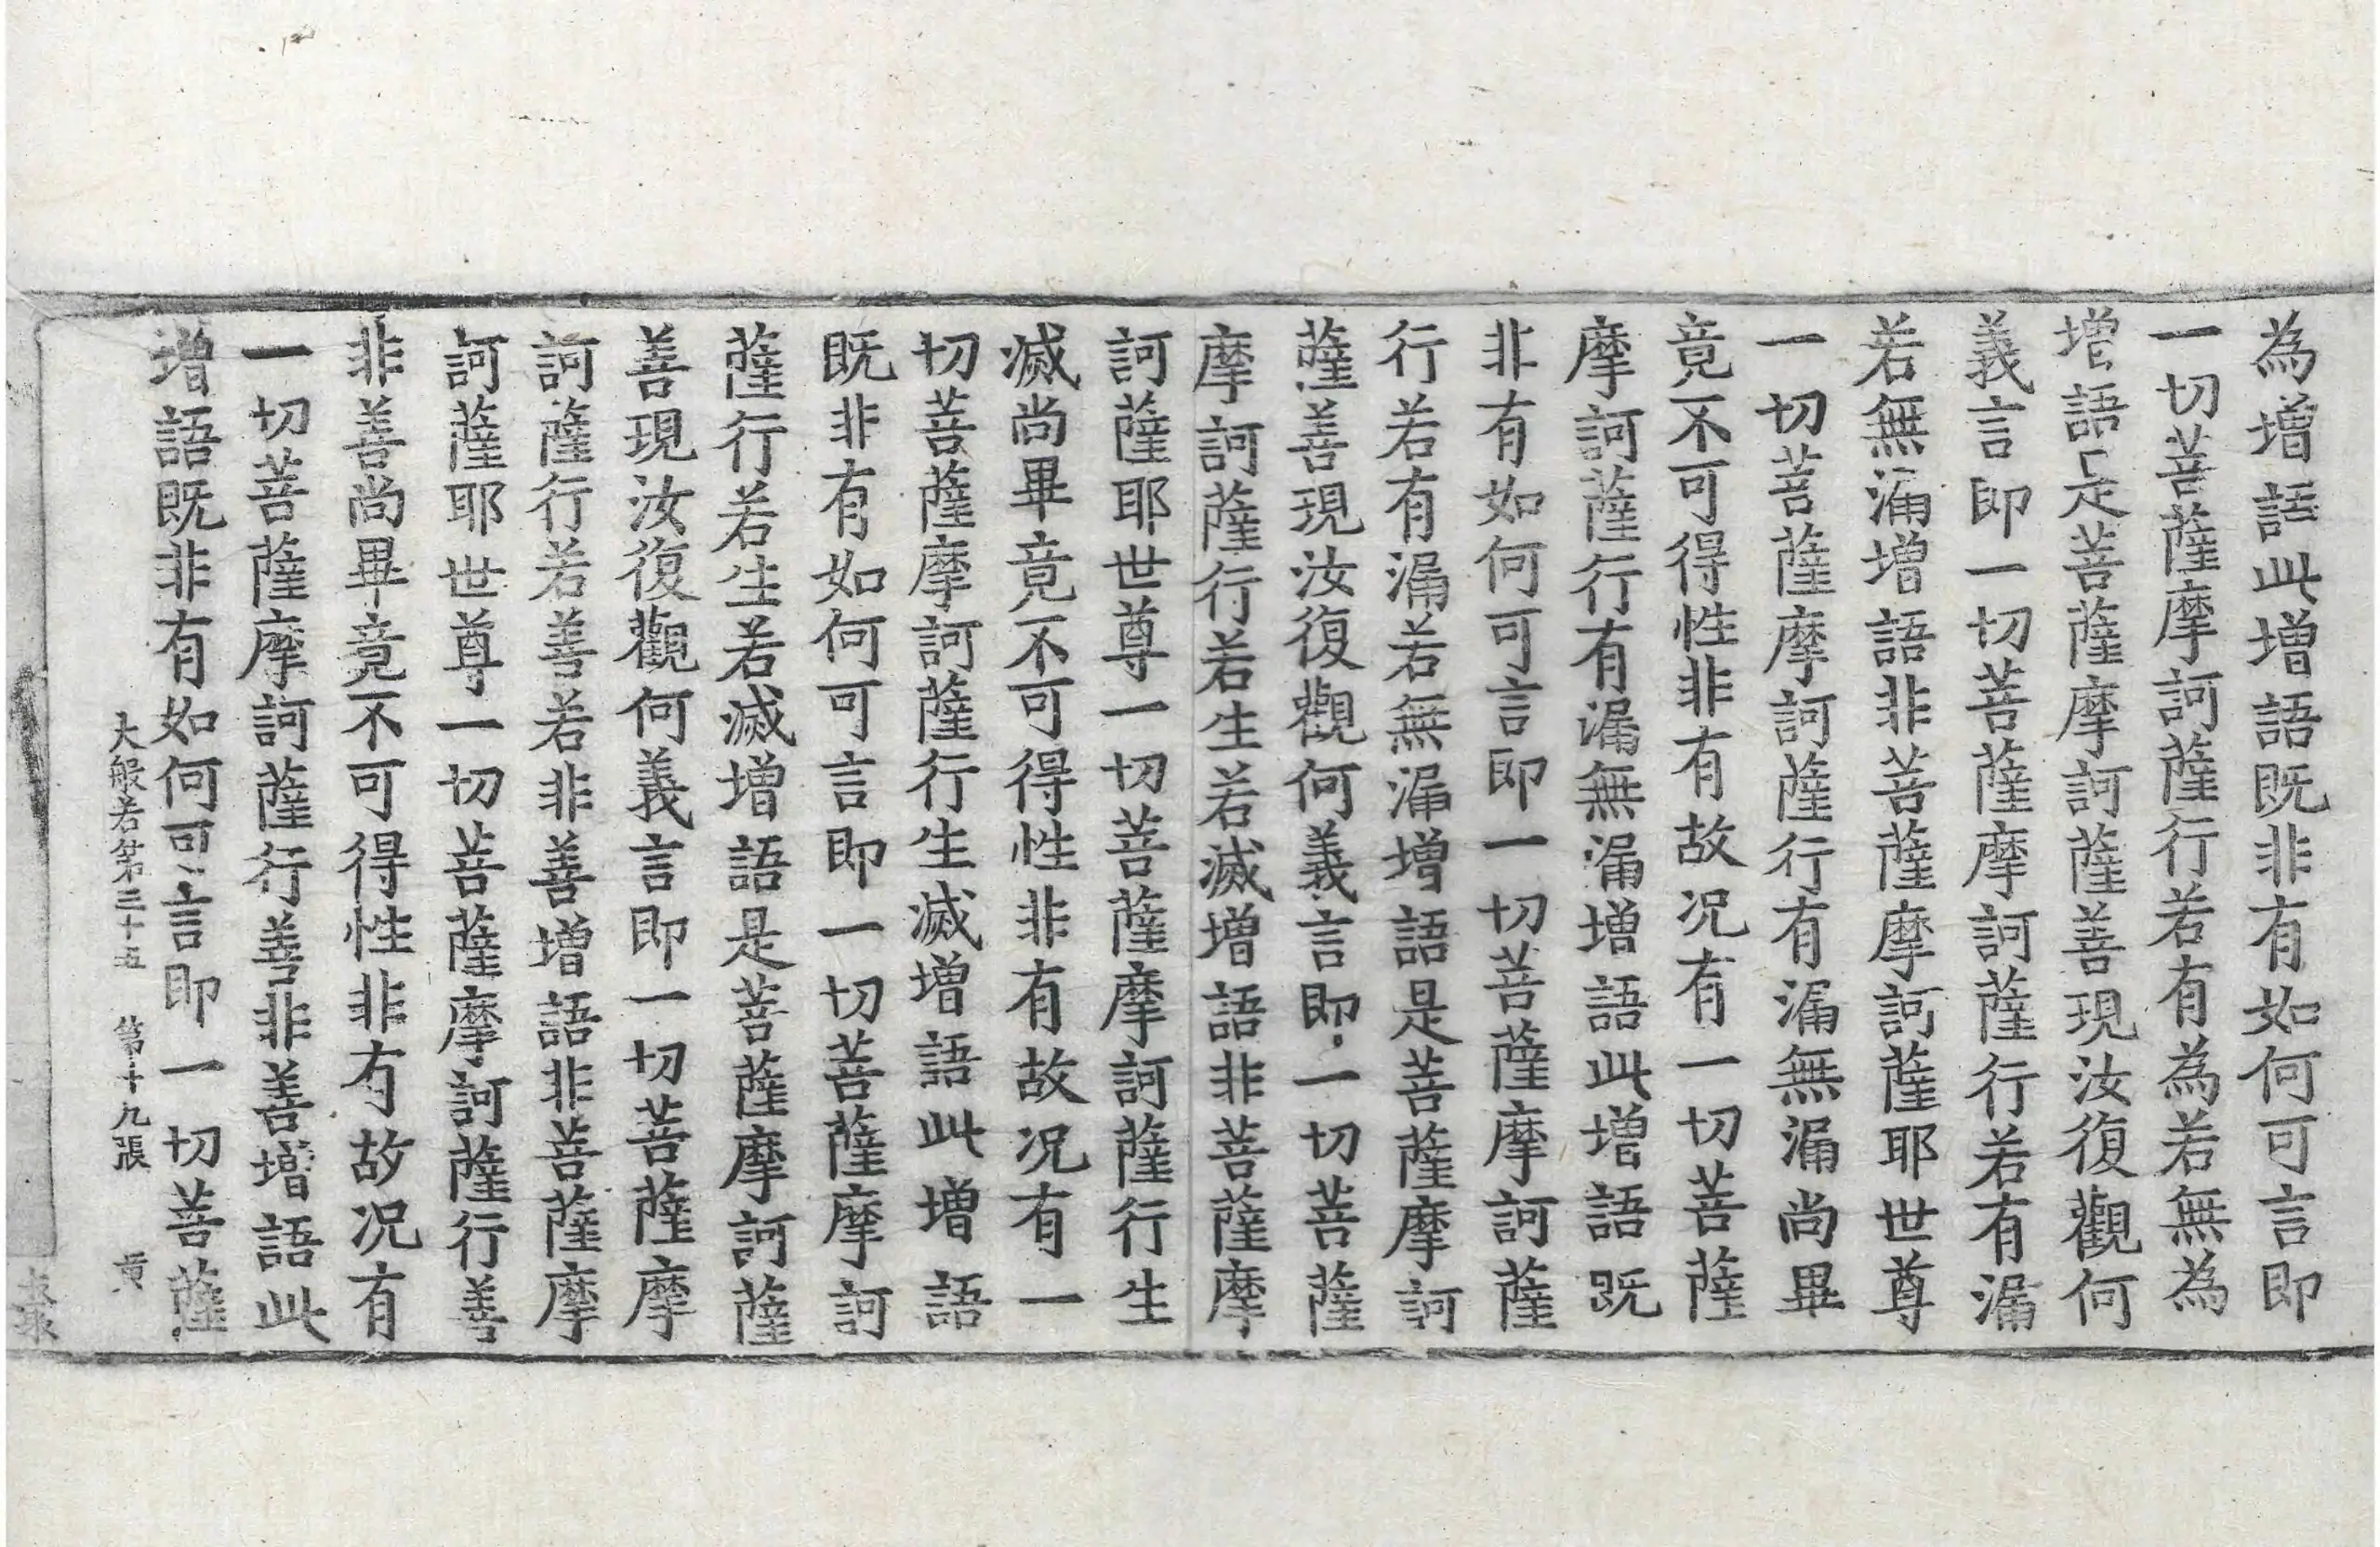 為增語此增語既非有如何可言即
一切菩薩摩訶薩行若有為若無為
增語是菩薩摩訶薩善現汝復觀何
義言即一切菩薩摩訶薩行若有漏
若無漏增語非菩薩摩訶薩耶世尊
一切菩薩摩訶薩行有漏無漏尚畢
竟不可得性非有故況有一切菩薩
摩訶薩行有漏無漏增語此增語既
非有如何可言即一切菩薩摩訶薩
行若有漏若無漏增語是菩薩摩訶
薩善現汝復觀何義言即一切菩薩
摩訶薩行若生若滅增語非菩薩摩
訶薩耶世尊一切菩薩摩訶薩行生
滅尚畢竟不可得性非有故況有一
切菩薩摩訶薩行生滅增語此增語
既非有如何可言即一切菩薩摩訶
薩行若生若滅增語是菩薩摩訶薩
善現汝復觀何義言即一切菩薩摩
訶薩行若善若非善增語非菩薩摩
訶薩耶世尊一切菩薩摩訶薩行善
非善尚畢竟不可得性非有故況有
一切菩薩摩訶薩行善非善增語此
增語既非有如何可言即一切菩薩
大般若第三十五 第十九張 黃